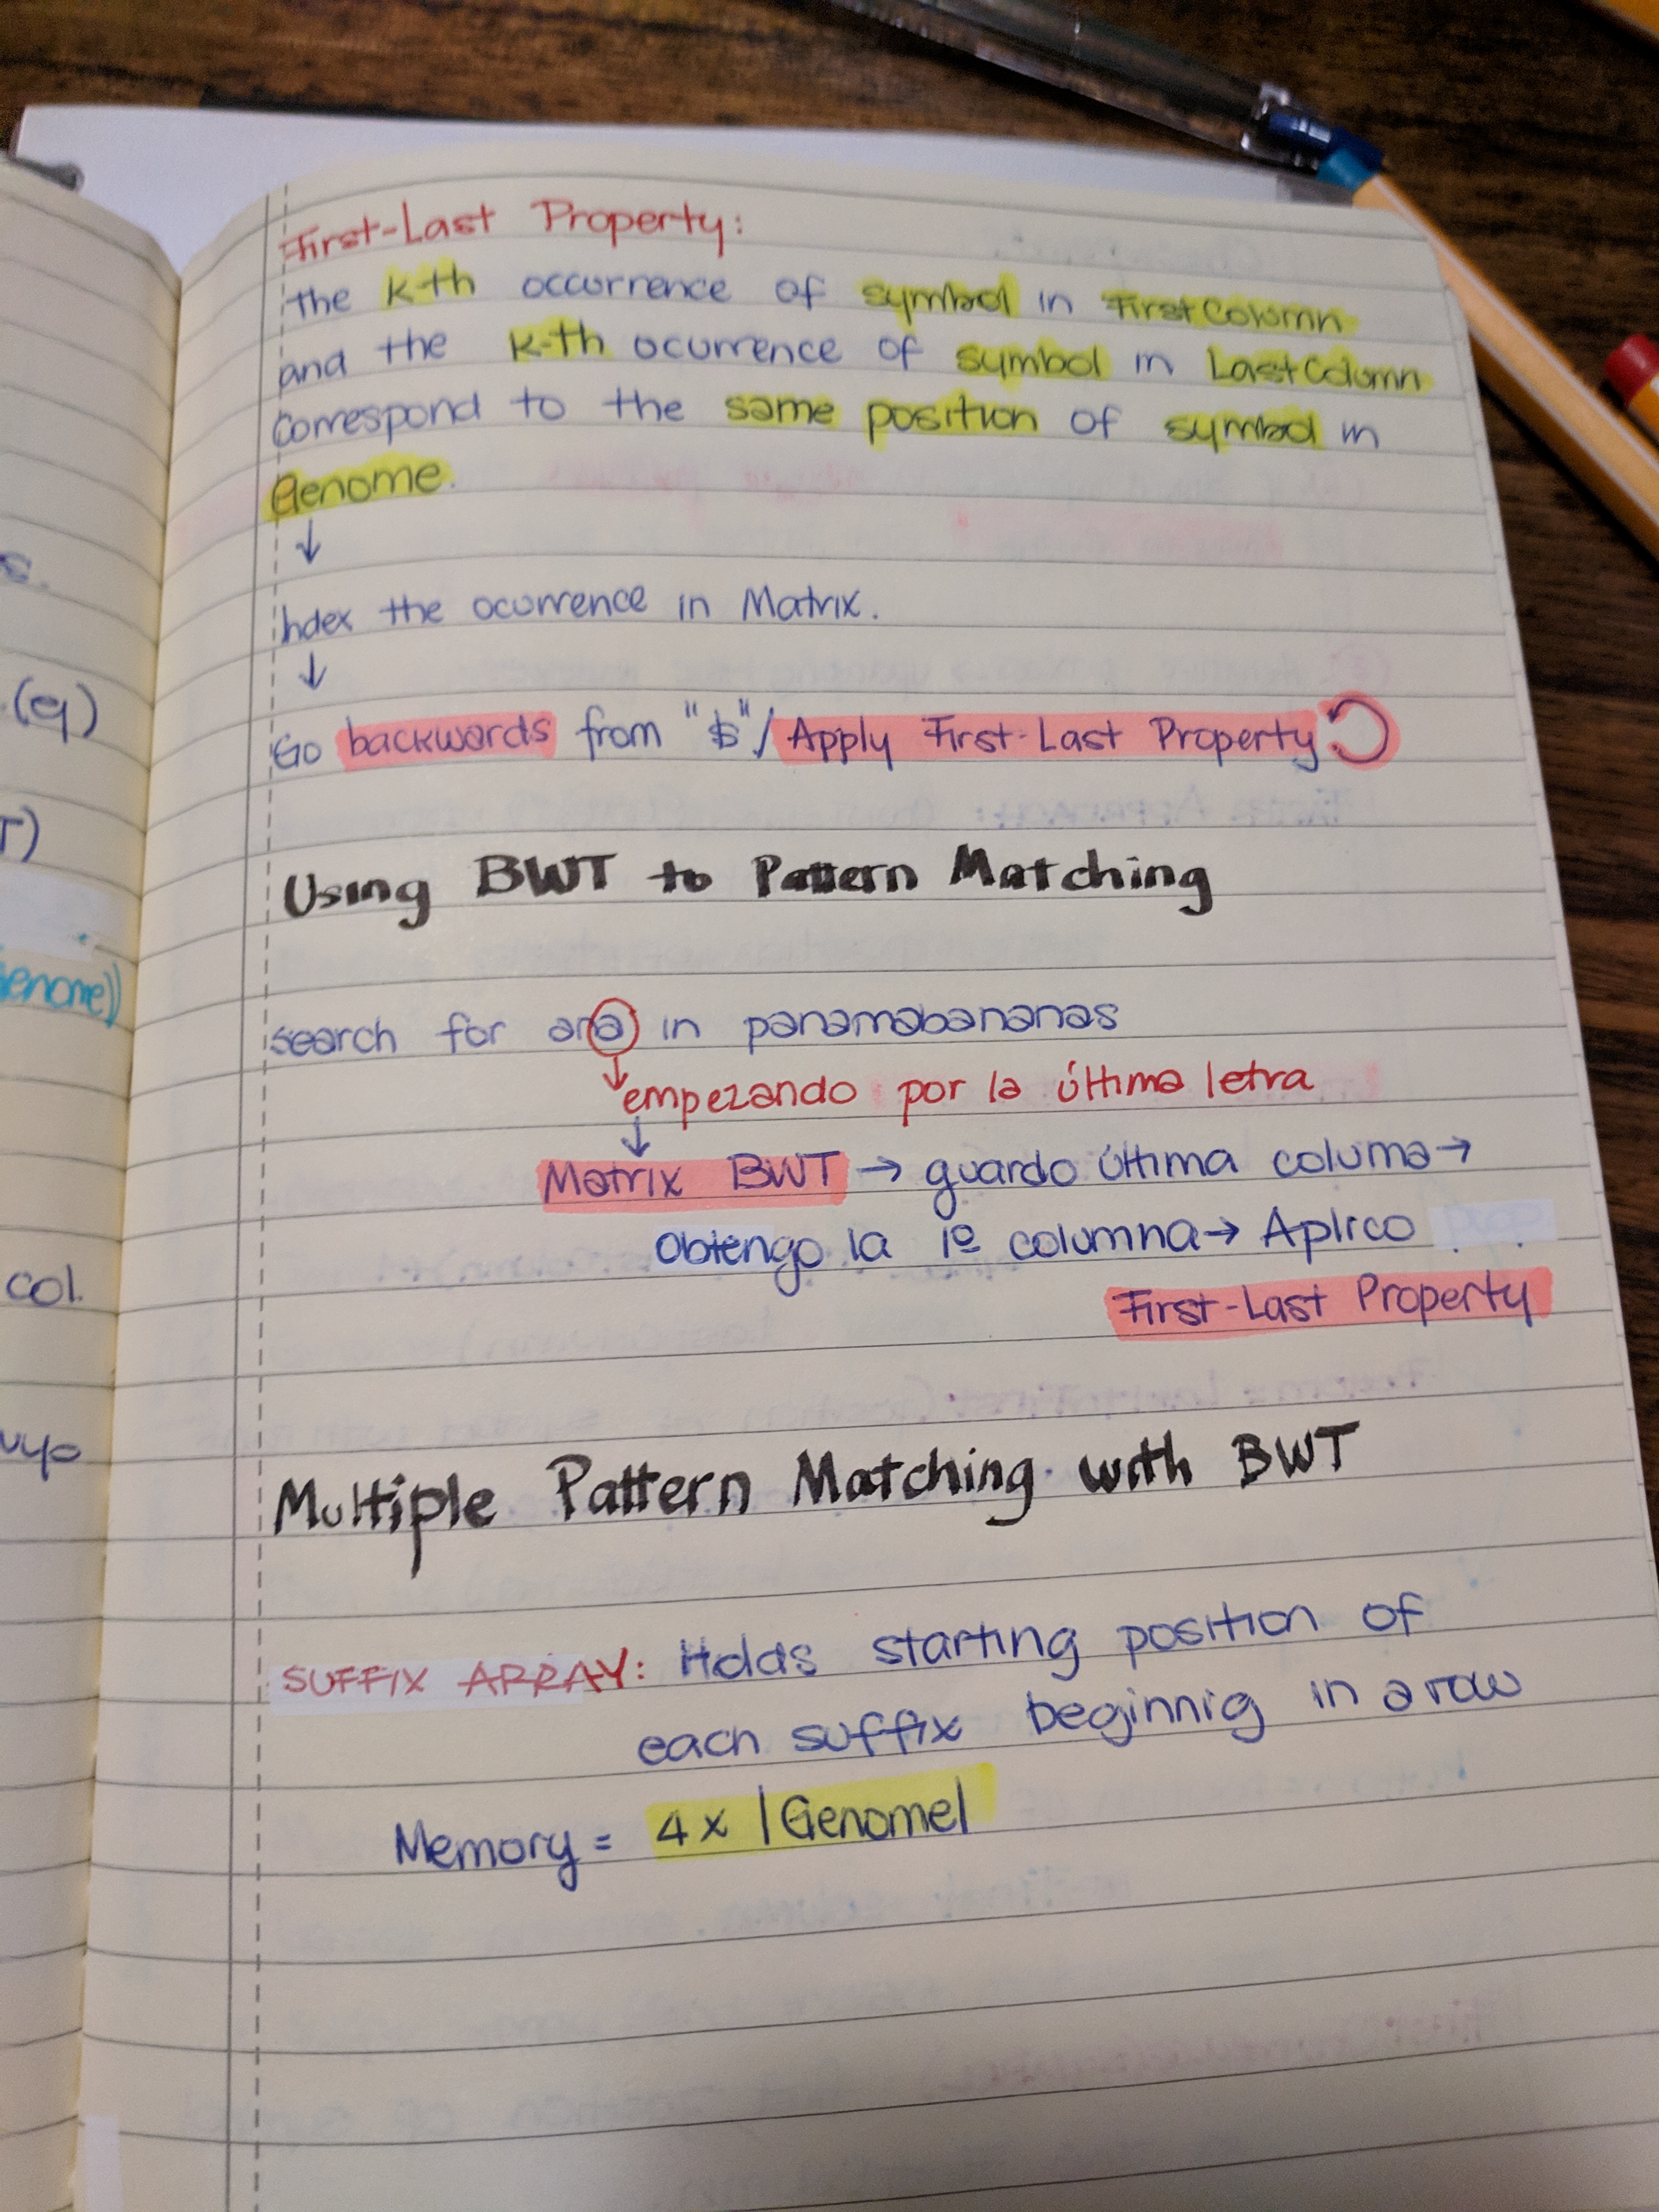 First-Last Property:
the k-th occurrence of symbol in FirstColumn
and the k-th ocurrence of symbol in LastColumn
correspond to the same position of symbol in
Genome.
↓
Index the ocurrence in Matrix.
↓
Go backwards from "$"/Apply First-Last Property
Using BWT to Pattern Matching
search for ana in panamabananas
↓ empezando por la última letra
↓
Matrix BWT → guardo última columa →
obtengo la 1º columna → Aplico
First-Last Property
Multiple Pattern Matching with BWT
SUFFIX ARRAY: Holds starting position of
each suffix beginnig in a row
Memory = 4x |Genome|
s.
(eq)
T)
Genome))
col.